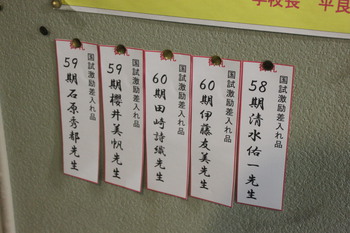 学校長 平良
御礼
国試激励差入れ品
58期清水佑一先生
御礼
国試激励差入れ品
60期伊藤友美先生
御礼
国試激励差入れ品
60期田崎詩織先生
御礼
国試激励差入れ品
59期櫻井美帆先生
御礼
国試激励差入れ品
59期石原秀都先生